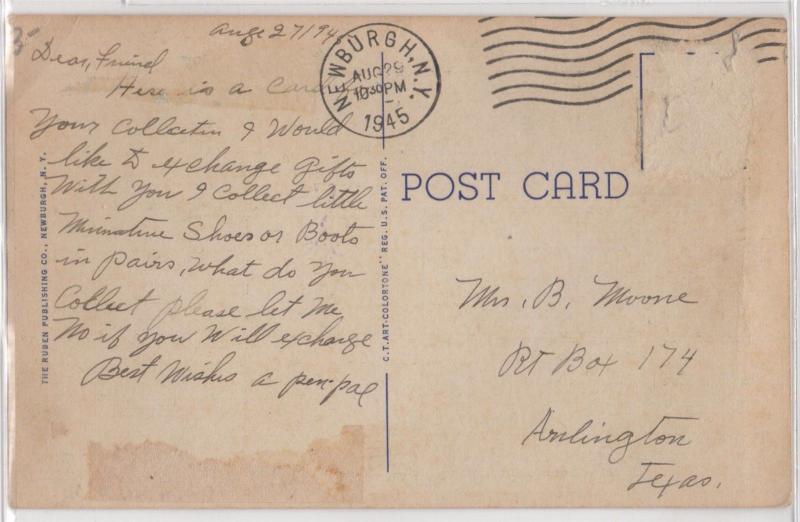 Aug 27/94
Dear, Friend
Here is a Card
Your Collectin I Would
like to exchange gifts
With you I Collect little
Mininature Shoes or Boots
in pairs, What do you
Collect please let me
No if you Will exchange
Best Wishes a pen-pal
NEWBURGH, N.Y.
AUG 29
1030 PM
1945
THE RUBEN PUBLISHING CO., NEWBURGH, N. Y.
C. T. ART-COLORTONE" REG. U.S. PAT. OFF.
POST CARD
Mrs, B. Moone
Rt Box 174
Arlington
Texas.